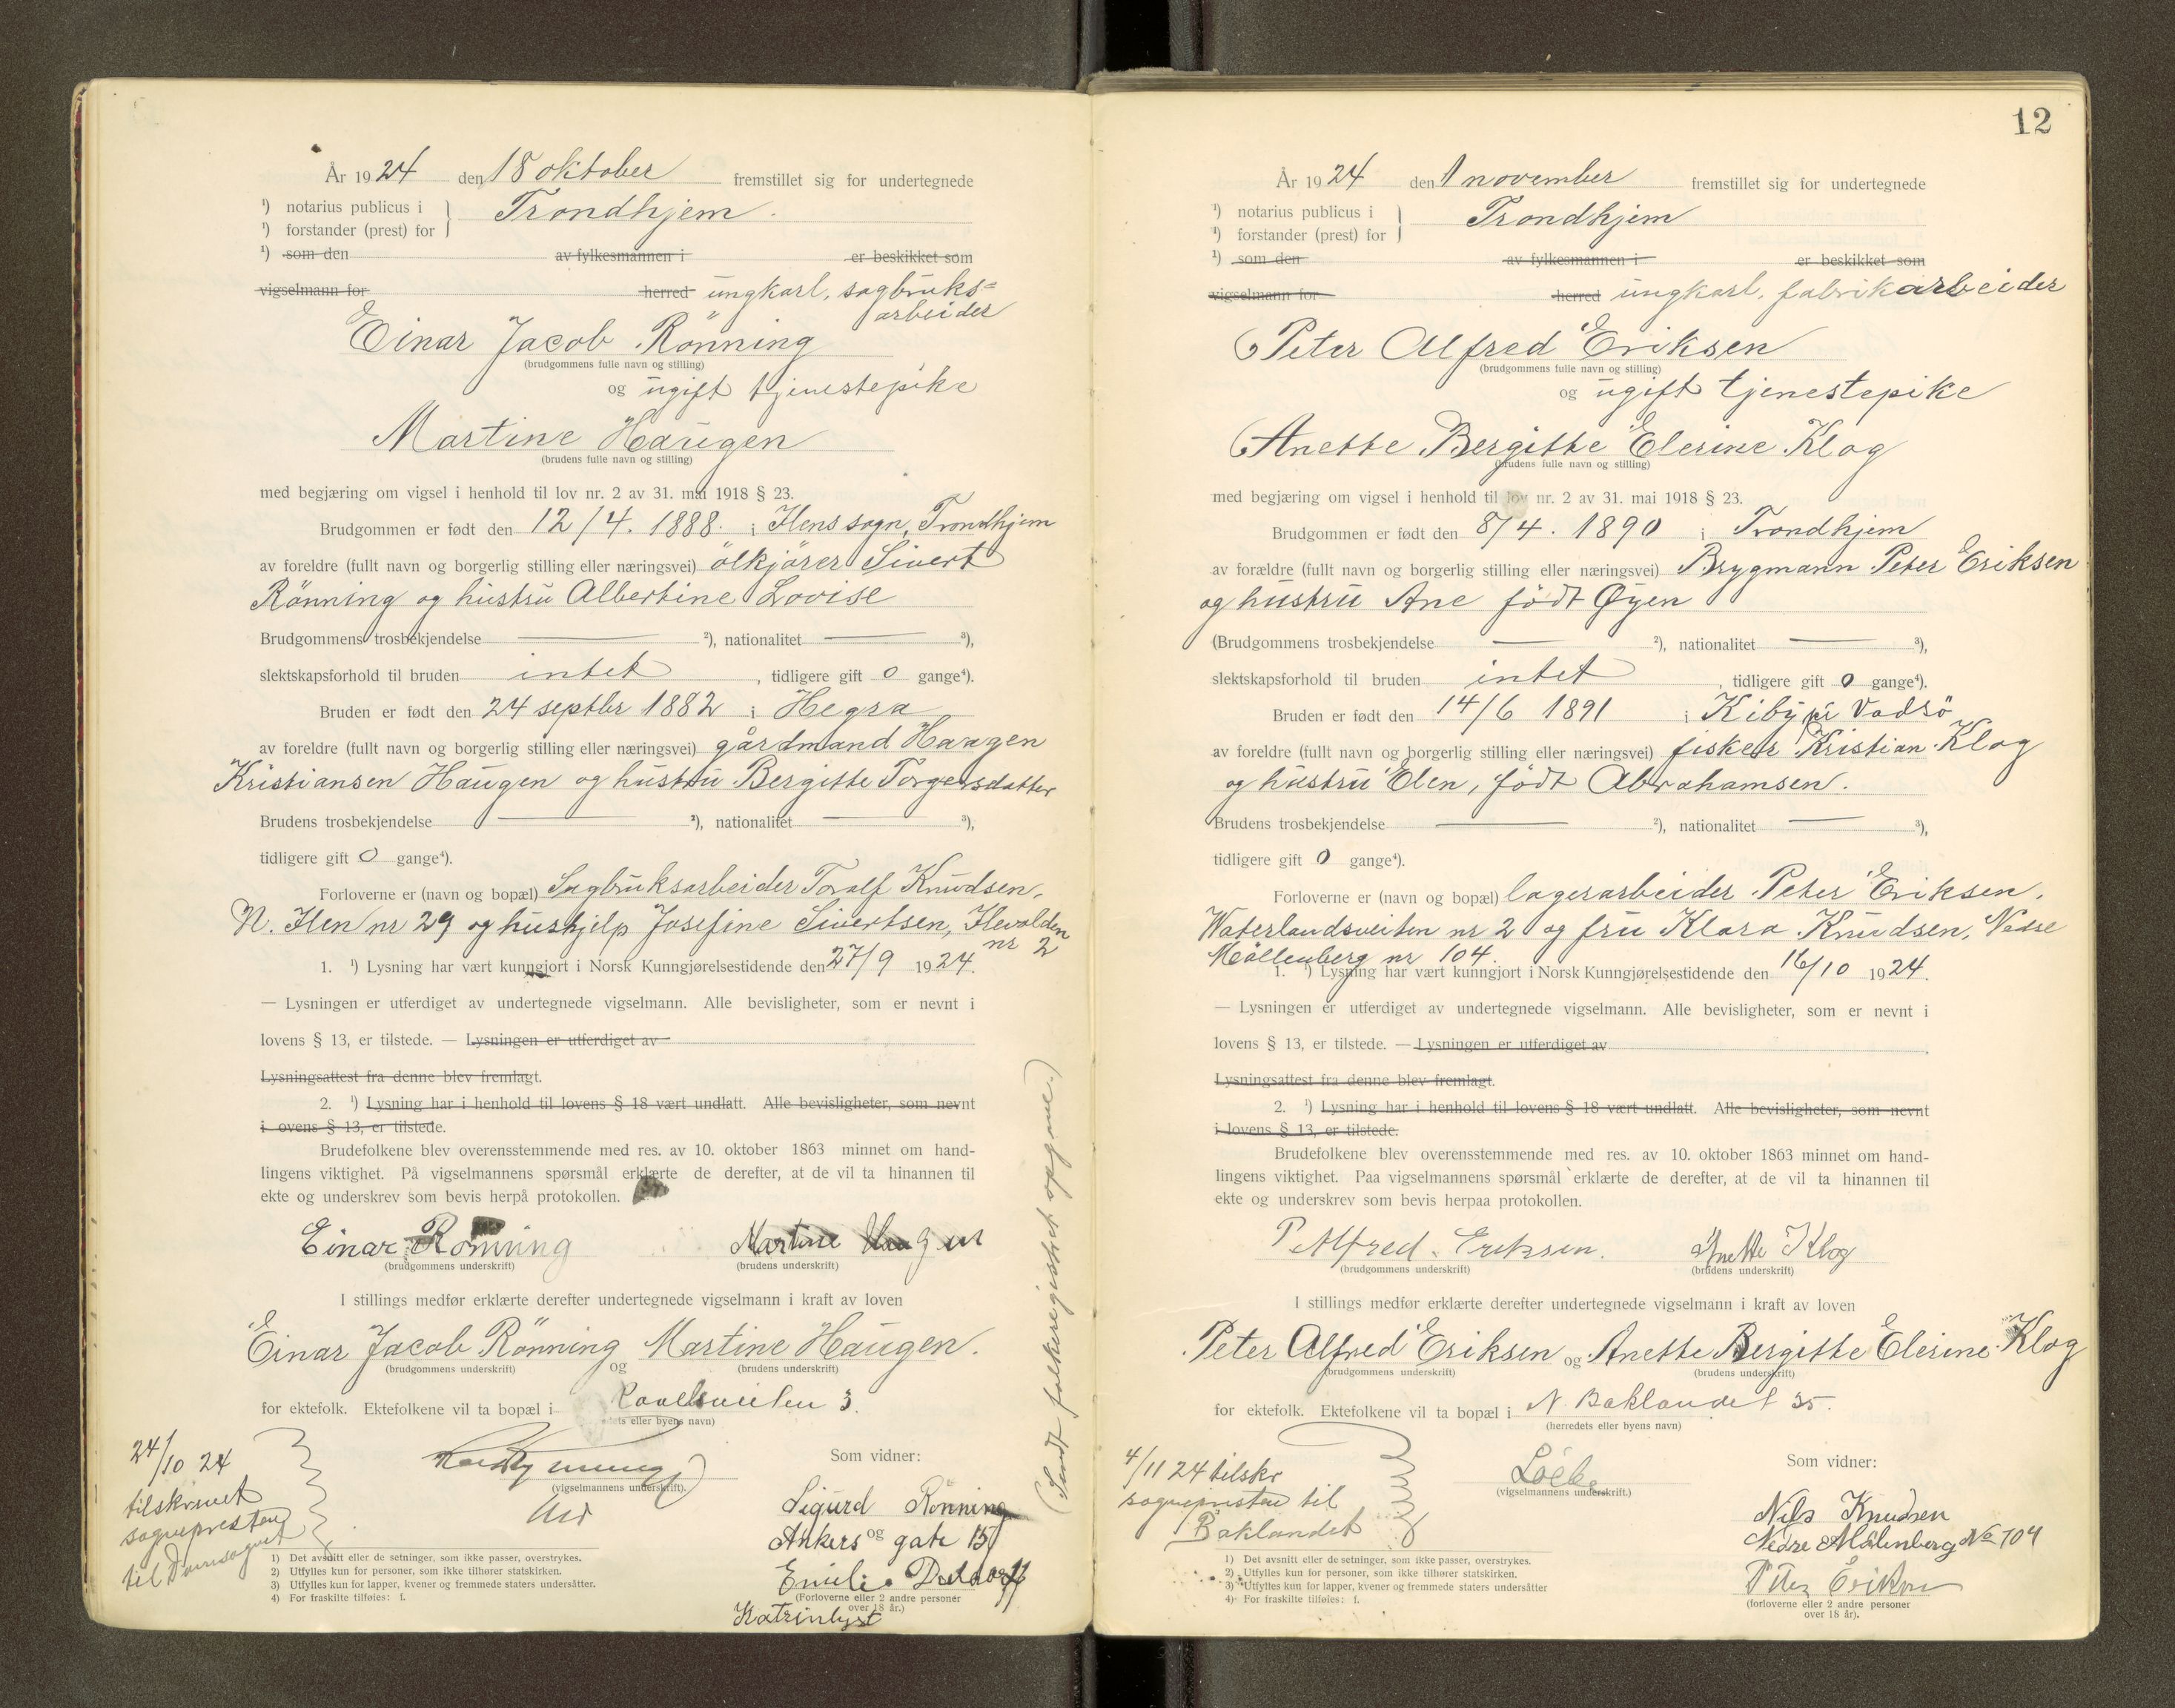 År 1924 den 18 oktober fremstillet sig for undertegnede
¹) notarius publicus i
¹) forstander (prest) for
Trondhjem.
¹) som den av fylkesmannen i er beskikket som
vigselmann for herred ungkarl, sagbruks=
arbeider
Einar Jacob Rönning
(brudgommens fulle navn og stilling)
og ugift tjenestepike
Martine Haugen
(brudens fulle navn og stilling)
med begjæring om vigsel i henhold til lov nr. 2 av 31. mai 1918 § 23.
Brudgommen er født den 12/4. 1888. i Ilens sogn, Trondhjem
av foreldre (fullt navn og borgerlig stilling eller næringsvei) ölkjörer Sivert
Rönning og hustru Albertine Lovise
Brudgommens trosbekjendelse — ²), nationalitet — ³),
slektskapsforhold til bruden intet, tidligere gift 0 gange⁴).
Bruden er født den 24 septbr 1882 i Hegra
av foreldre (fullt navn og borgerlig stilling eller næringsvei) gårdmand Haagen
Kristiansen Haugen og hustru Bergitte Torgersdatter
Brudens trosbekjendelse — ²), nationalitet — ³),
tidligere gift 0 gange⁴).
Forloverne er (navn og bopæl) Sagbruksarbeider Toralf Knudsen,
N. Ilen nr 29 og hushjelp Josefine Sivertsen, Ilevolden
nr 2
1. ¹) Lysning har vært kunngjort i Norsk Kunngjørelsestidende den 27/9 1924.
— Lysningen er utferdiget av undertegnede vigselmann. Alle bevisligheter, som er nevnt i
lovens § 13, er tilstede. — Lysningen er utferdiget av
Lysningsattest fra denne blev fremlagt.
2. ¹) Lysning har i henhold til lovens § 18 vært undlatt. Alle bevisligheter, som nevnt
i ovens § 13, er tilstede.
Brudefolkene blev overensstemmende med res. av 10. oktober 1863 minnet om hand-
lingens viktighet. På vigselmannens spørsmål erklærte de derefter, at de vil ta hinannen til
ekte og underskrev som bevis herpå protokollen.
Einar Rönning Martine Haugen
(brudgommens underskrift) (brudens underskrift)
I stillings medfør erklærte derefter undertegnede vigselmann i kraft av loven
Einar Jacob Rönning og Martine Haugen.
(brudgommens underskrift) (brudens underskrift)
for ektefolk. Ektefolkene vil ta bopæl i 3.
eller byens navn)
(Sendt folkeregistret opgave.)
24/10 24
tilskrevet
sognepresten
til Domsognet
(vigselmannens underskrift).
Som vidner:
Sigurd Rönning
Ankers gate 15
og
Emilie
(Forloverne eller 2 andre personer
over 18 år.)
Katrinlyst
1) Det avsnitt eller de setninger, som ikke passer, overstrykes.
2) Utfylles kun for personer, som ikke tilhører statskirken.
3) Utfylles kun for lapper, kvener og fremmede staters undersåtter.
4) For fraskilte tilføies: f.
12
År 1924 den 1 november fremstillet sig for undertegnede
¹) notarius publicus i
¹) forstander (prest) for
Trondhjem
¹) som den av fylkesmannen i er beskikket som
vigselmann for herred ungkarl, fabrikarbeider
Peter Alfred Eriksen
(brudgommens fulle navn og stilling)
og ugift tjenestepike
Anette Bergitte Elerine Klog
(brudens fulle navn og stilling)
med begjæring om vigsel i henhold til lov nr. 2 av 31. mai 1918 § 23.
Brudgommen er født den 8/4. 1890 i Trondhjem
av forældre (fullt navn og borgerlig stilling eller næringsvei) Brygmann Peter Eriksen
og hustru Ane født Øyen
(Brudgommens trosbekjendelse — ²), nationalitet — ³),
slektskapsforhold til bruden intet, tidligere gift 0 gange⁴).
Bruden er født den 14/6 1891 i Kiby i Vadsö
av foreldre (fullt navn og borgerlig stilling eller næringsvei) fisker Kristian Klog
og hustru Elen, født Abrahamsen.
Brudens trosbekjendelse — ²), nationalitet — ³),
tidligere gift 0 gange⁴).
Forloverne er (navn og bopæl) lagerarbeider Peter Eriksen,
Waterlandsveiten nr 2 og fru Klara Knudsen, Nedre
Möllenberg nr 104.
1. ¹) Lysning har vært kunngjort i Norsk Kunngjørelsestidende den 16/10 1924.
— Lysningen er utferdiget av undertegnede vigselmann. Alle bevisligheter, som er nevnt i
lovens § 13, er tilstede. — Lysningen er utferdiget av
Lysningsattest fra denne blev fremlagt.
2. ¹) Lysning har i henhold til lovens § 18 vært undlatt. Alle bevisligheter, som nevnt
i lovens § 13, er tilstede.
Brudefolkene blev overensstemmende med res. av 10. oktober 1863 minnet om hand-
lingens viktighet. Paa vigselmannens spørsmål erklærte de derefter, at de vil ta hinannen til
ekte og underskrev som bevis herpaa protokollen.
P Alfred. Eriksen. Anette Klog
(brudgommens underskrift) (brudens underskrift)
I stillings medfør erklærte derefter undertegnede vigselmann i kraft av loven
Peter Alfred Eriksen og Anette Bergitte Elerine Klog
(brudgommens underskrift) (brudens underskrift)
for ektefolk. Ektefolkene vil ta bopæl i N. Baklandet 35.
(herredets eller byens navn)
4/11 24 tilskr
sognepresten til
Baklandet
(vigselmannens underskrift.)
Som vidner:
Nils Knudsen
Nedre Mölenberg No 104
Peter Eriksen
(forloverne eller 2 andre personer
over 18 år).
1) Det avsnitt eller de setninger, som ikke passer, overstrykes.
2) Utfylles kun for personer, som ikke tilhører statskirken.
3) Utfylles kun for lapper, kvener og fremmede staters undersåtter
4) For fraskilte tilføies: f.